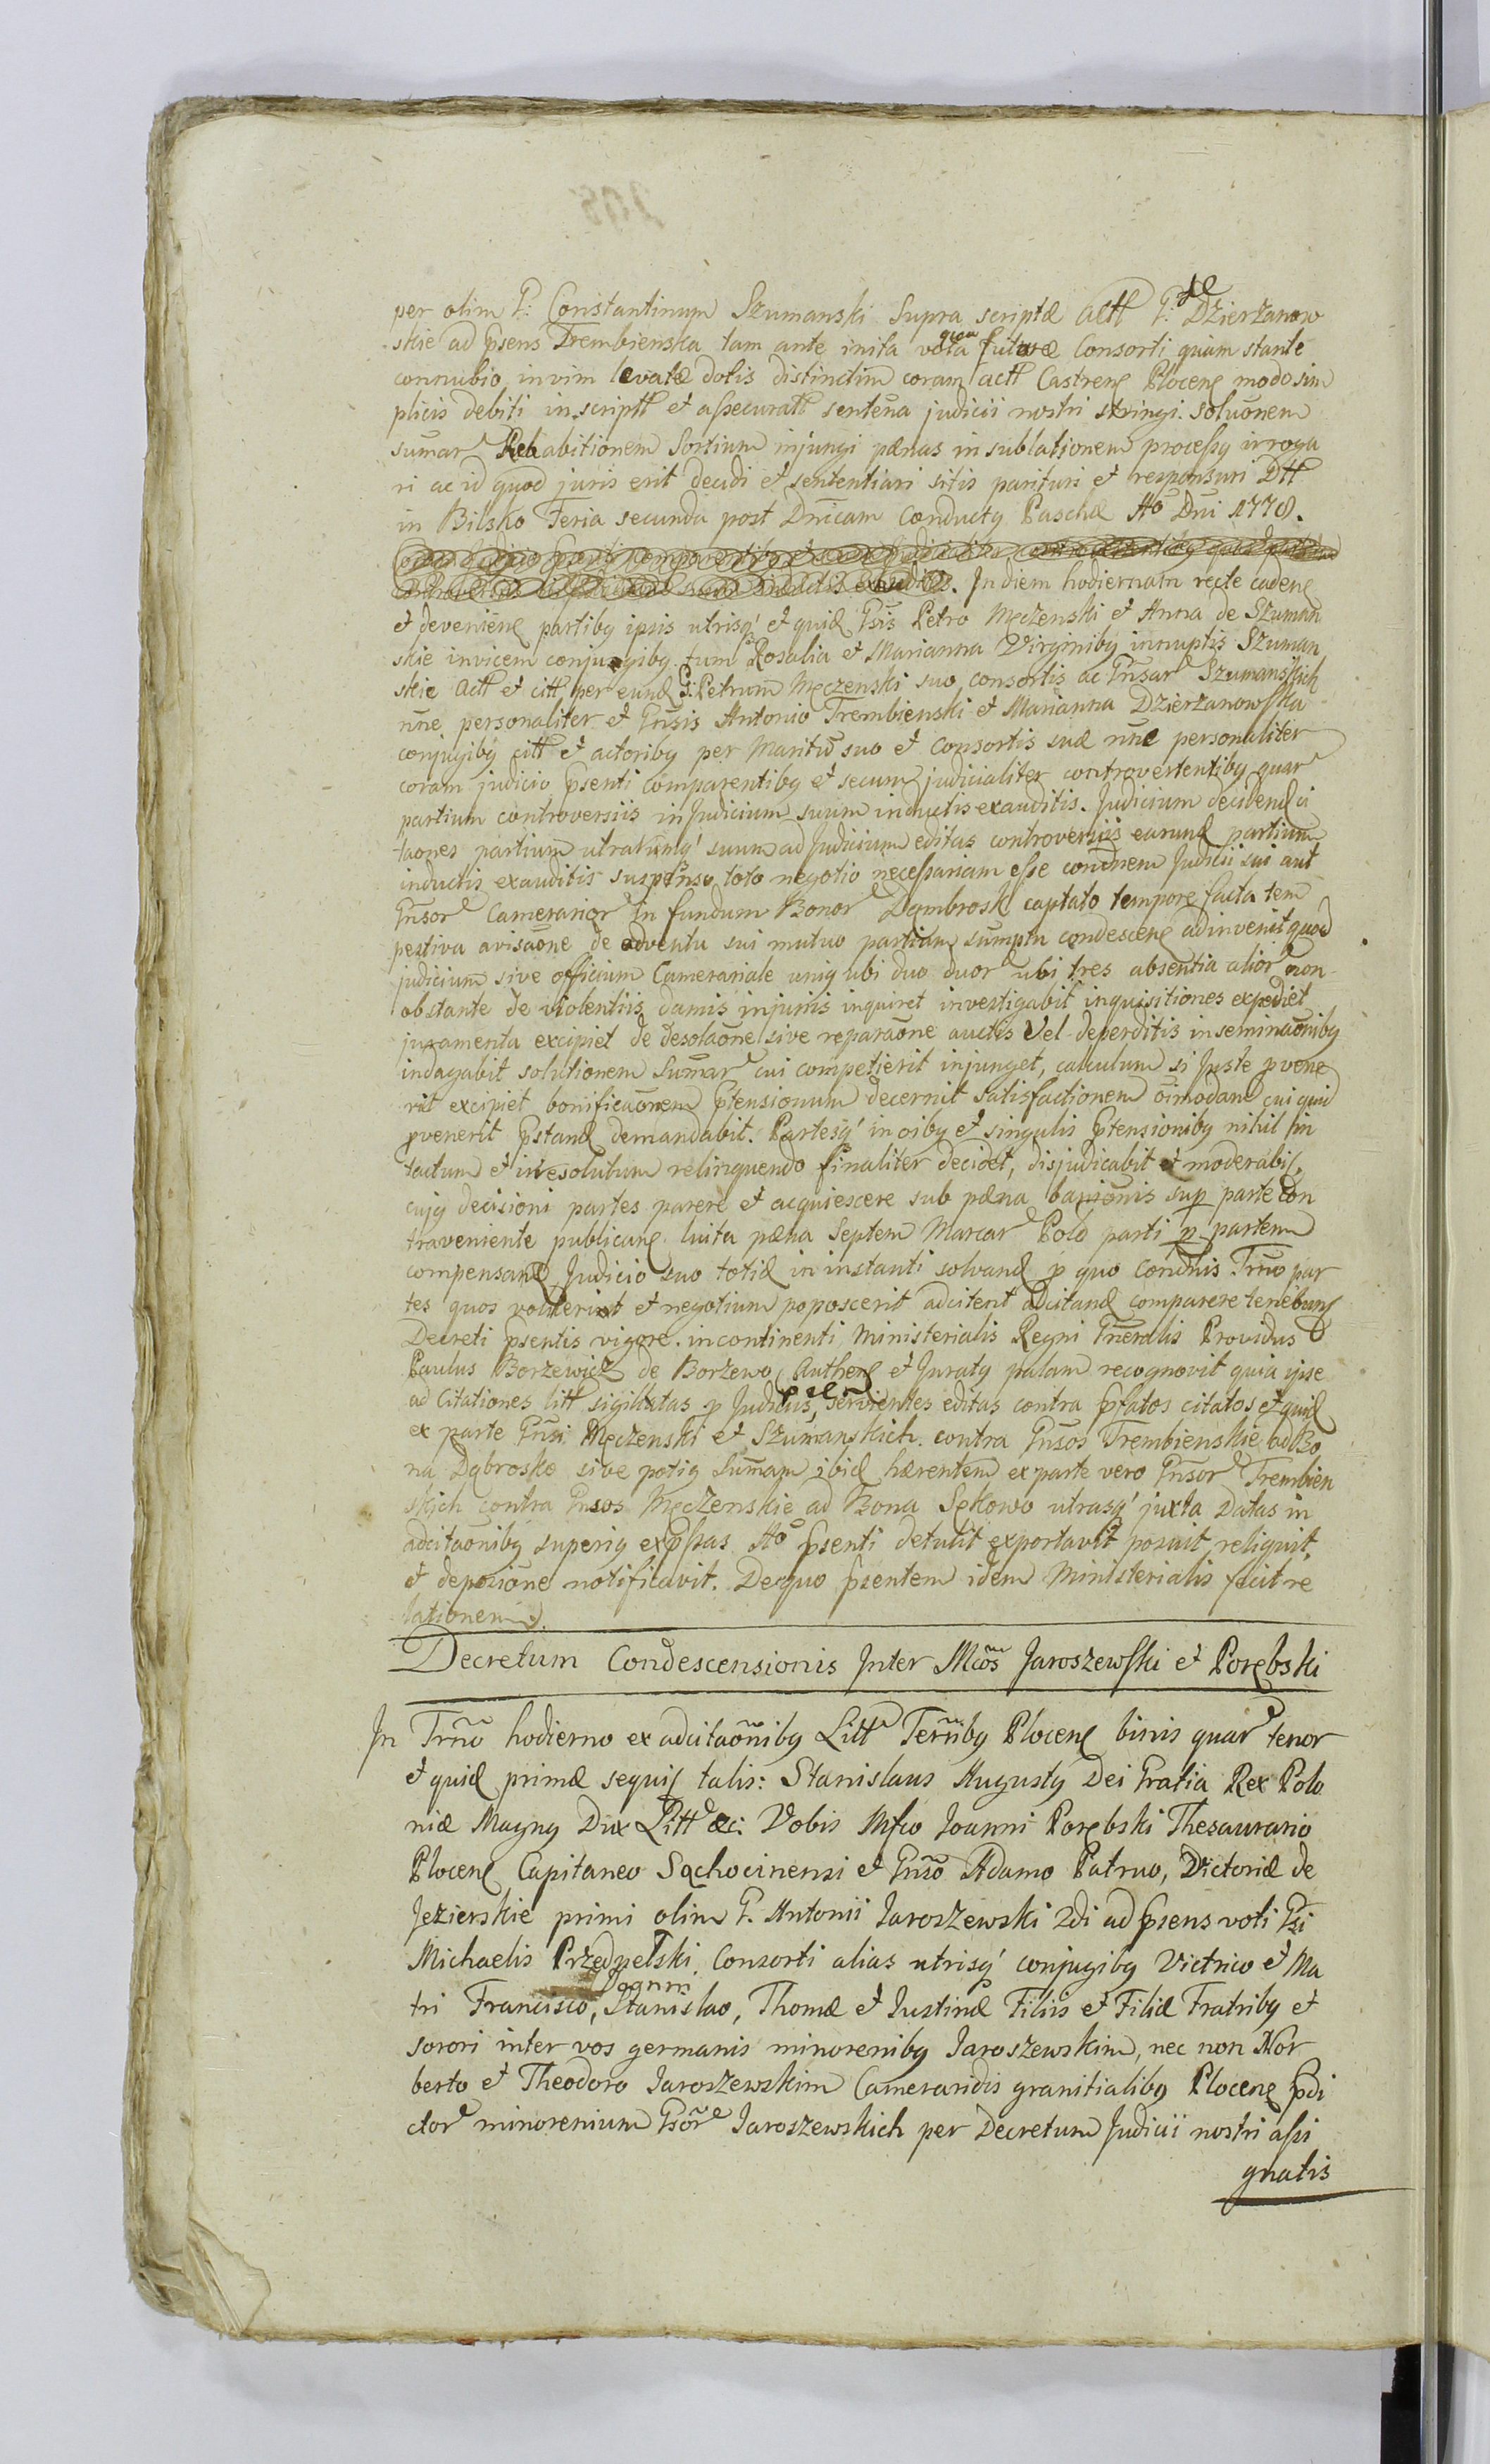 de
per olim G: Constantinum Szumanski supra scriptæ Actt G: Dzierżanow
skie ad pn̄sens Trembienska tam ante inita vota qua futuræ Consorti quam stante
connubio in vim levatæ dotis distinctim coram actt Castren Plocen modo sim
plicis debiti inscriptt et assecuratt sentēna judicii nostri stringi. Soluōnem
sum̄ar Rehabitionem Sortium injungi pænas in sublationem processq irroga
ri ac id quod juris erit decidi et sententiari sitis parituri et responsuri Dtt
in Bilsko Feria secunda post Dnīcam Conductq Paschæ Aō Dnī 1778.
In diem hodiernam recte caden
et devenien partibq ipsis utrisq' et quid Gsis Petro Męczenski et Anna de Szuman
skie invicem conjugibq tum Rosalia et Marianna Virginibq innuptis Szuman
skie Actt et citt per eund G: Petrum Męczenski suo, consortis ac Gn̄sar Szumanskich
nn̄e personaliter et Gn̄sis Antonio Trembienski et Marianna Dzierżanowska
conjugibq citt et actoribq per Maritū suo et consortis suæ nn̄e personaliter
coram judicio pn̄senti comparentibq et secum judicialiter controvertentibq quar
partium controversiis in Judicium suum inductis exauditis. Judicium deciden ci
taōnes partium utrarumq' suum ad Judicium editas controversiis earund partium
inductis exauditis suspenso toto negotio necessariam esse condn̄em Judicii sui aut
Gn̄sor Camerarior in fundum Bonor Dąmbrosk captato tempore facta tem
pestiva avisaōne de adventu sui mutuo partium sum̄ptu condescen adinvenit quod
judicium sive officium Camerariale uniq ubi duo duor ubi tres absentia alior non
obstante de violentiis damis injuriis inquiret investigabit inquisitiones expediet
juramenta excipiet de desolaōne sive reparaōne auctis vel deperditis inseminaōnibq
indagabit solutionem Sum̄ar cui competierit injunget, calculum si Juste pvene
rit excipiet bonificaōnem ptensionum decernit satisfactionem oīmodam cui quid
pvenerit pstand demandabit. Partesq' in oībq et singulis ptensionibq nihil in
tactum et irresolutum relinquendo finaliter decidet, disjudicabit et moderabit
cujq decisioni partes parere et acquiescere sub pæna baniōnis sup parte con
traveniente publican luita pæna septem Marcar Polo parti p partem
compensand Judicio suo totid in instanti solvand p quo Condn̄is Trn̄o par
tes quos voluerint et negotium poposcerit adcitent adcitand comparere tenebun
Decreti pn̄sentis vigore. incontinenti Ministerialis Regni Gn̄eralis Providus
Paulus Borzewicz de Borzewo Authen et Juratq palam recognovit quia ipse
ad Citationes litt sigillatas p Judicii, servientes editas contra pfatos citatos et quid
ex parte Gn̄si Męczenski et Szumanskich contra Gn̄sos Trembienskie ad Bo
na Dąbrosko sive potiq Sum̄am ibid hærentem ex parte vero Gn̄sor Trembien
skich contra Gn̄sos Męczenskie ad Bona Sękowo utrasq' juxta Datas in
adcitaōnibq superiq expssas Aō pn̄senti detulit exportavit posuit reliquit
et deposiōne notificavit. De quo pn̄sentem idem Ministerialis fecit re
lationem.
Decretum Condescensionis Inter Mcōs Jaroszewski et Porębski
In Trn̄o hodierno ex adcitaōnibq Litt Tern̄ibq Plocen binis quar tenor
et quid primæ sequit talis: Stanislaus Augustq Dei Gratia Rex Polo
niæ Magnq Dux Litt &c: Vobis Mfco Joanni Porębski Thesaurario
Plocen Capitaneo Sąchocinensi et Gn̄so Adamo Patruo, Victoriæ de
Jezierskie primi olim G. Antonii Jaroszewski 2di ad pn̄sens voti Gsi
Michaelis Przedpełski Consorti alias utrisq' conjugibq Victrico et Ma
tri Francisco, Joanni Stanislao, Thomæ et Justinæ Filiis et Filiæ Fratribq et
sorori inter vos germanis minorenibq Jaroszewskim, nec non Nor
berto et Theodoro Jaroszewskim Cameraridis granitialibq Plocen pdi
ctor minorenium Gsor Jaroszewskich per Decretum Judicii nostri assi
gnatis